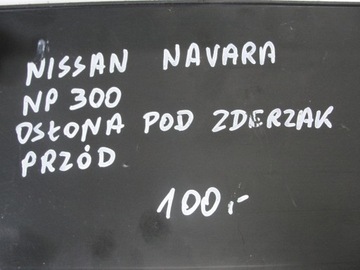 NISSAN NAVARA
NP 300
OSŁONA POD ZDERZAK
PRZÓD
100,-